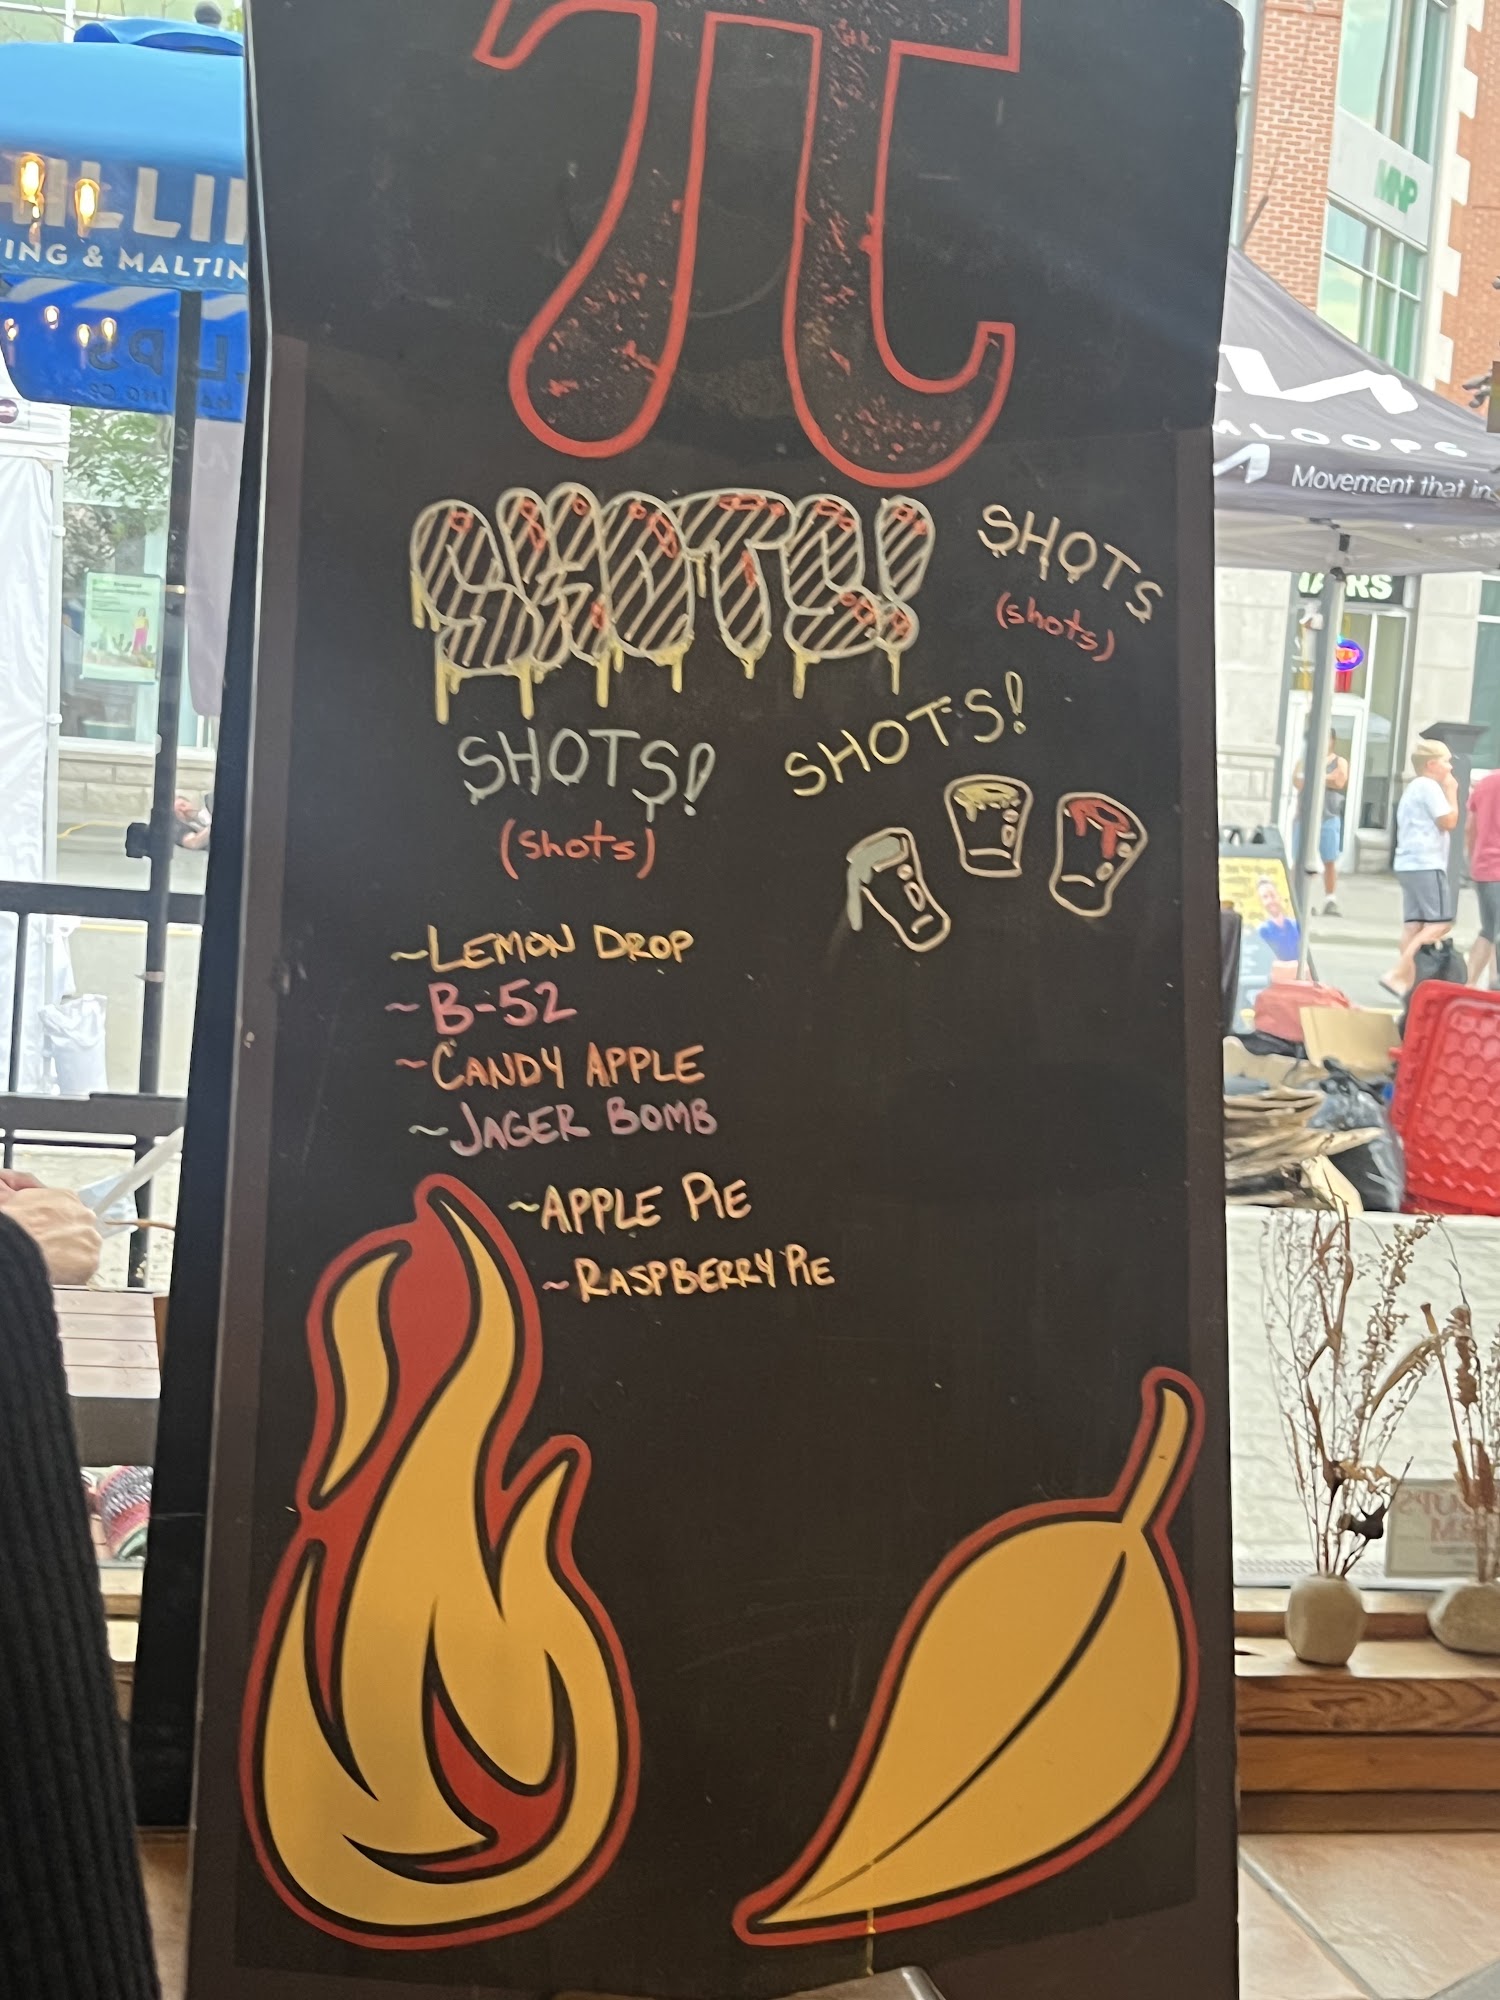 π
SHOTS!
SHOTS
(shots)
SHOTS!
(shots)
SHOTS!
~LEMON DROP
~B-52
~CANDY APPLE
~JAGER BOMB
~APPLE PIE
~RASPBERRY PIE
& MALTIN
MNP
MLOOPS
Movement that in